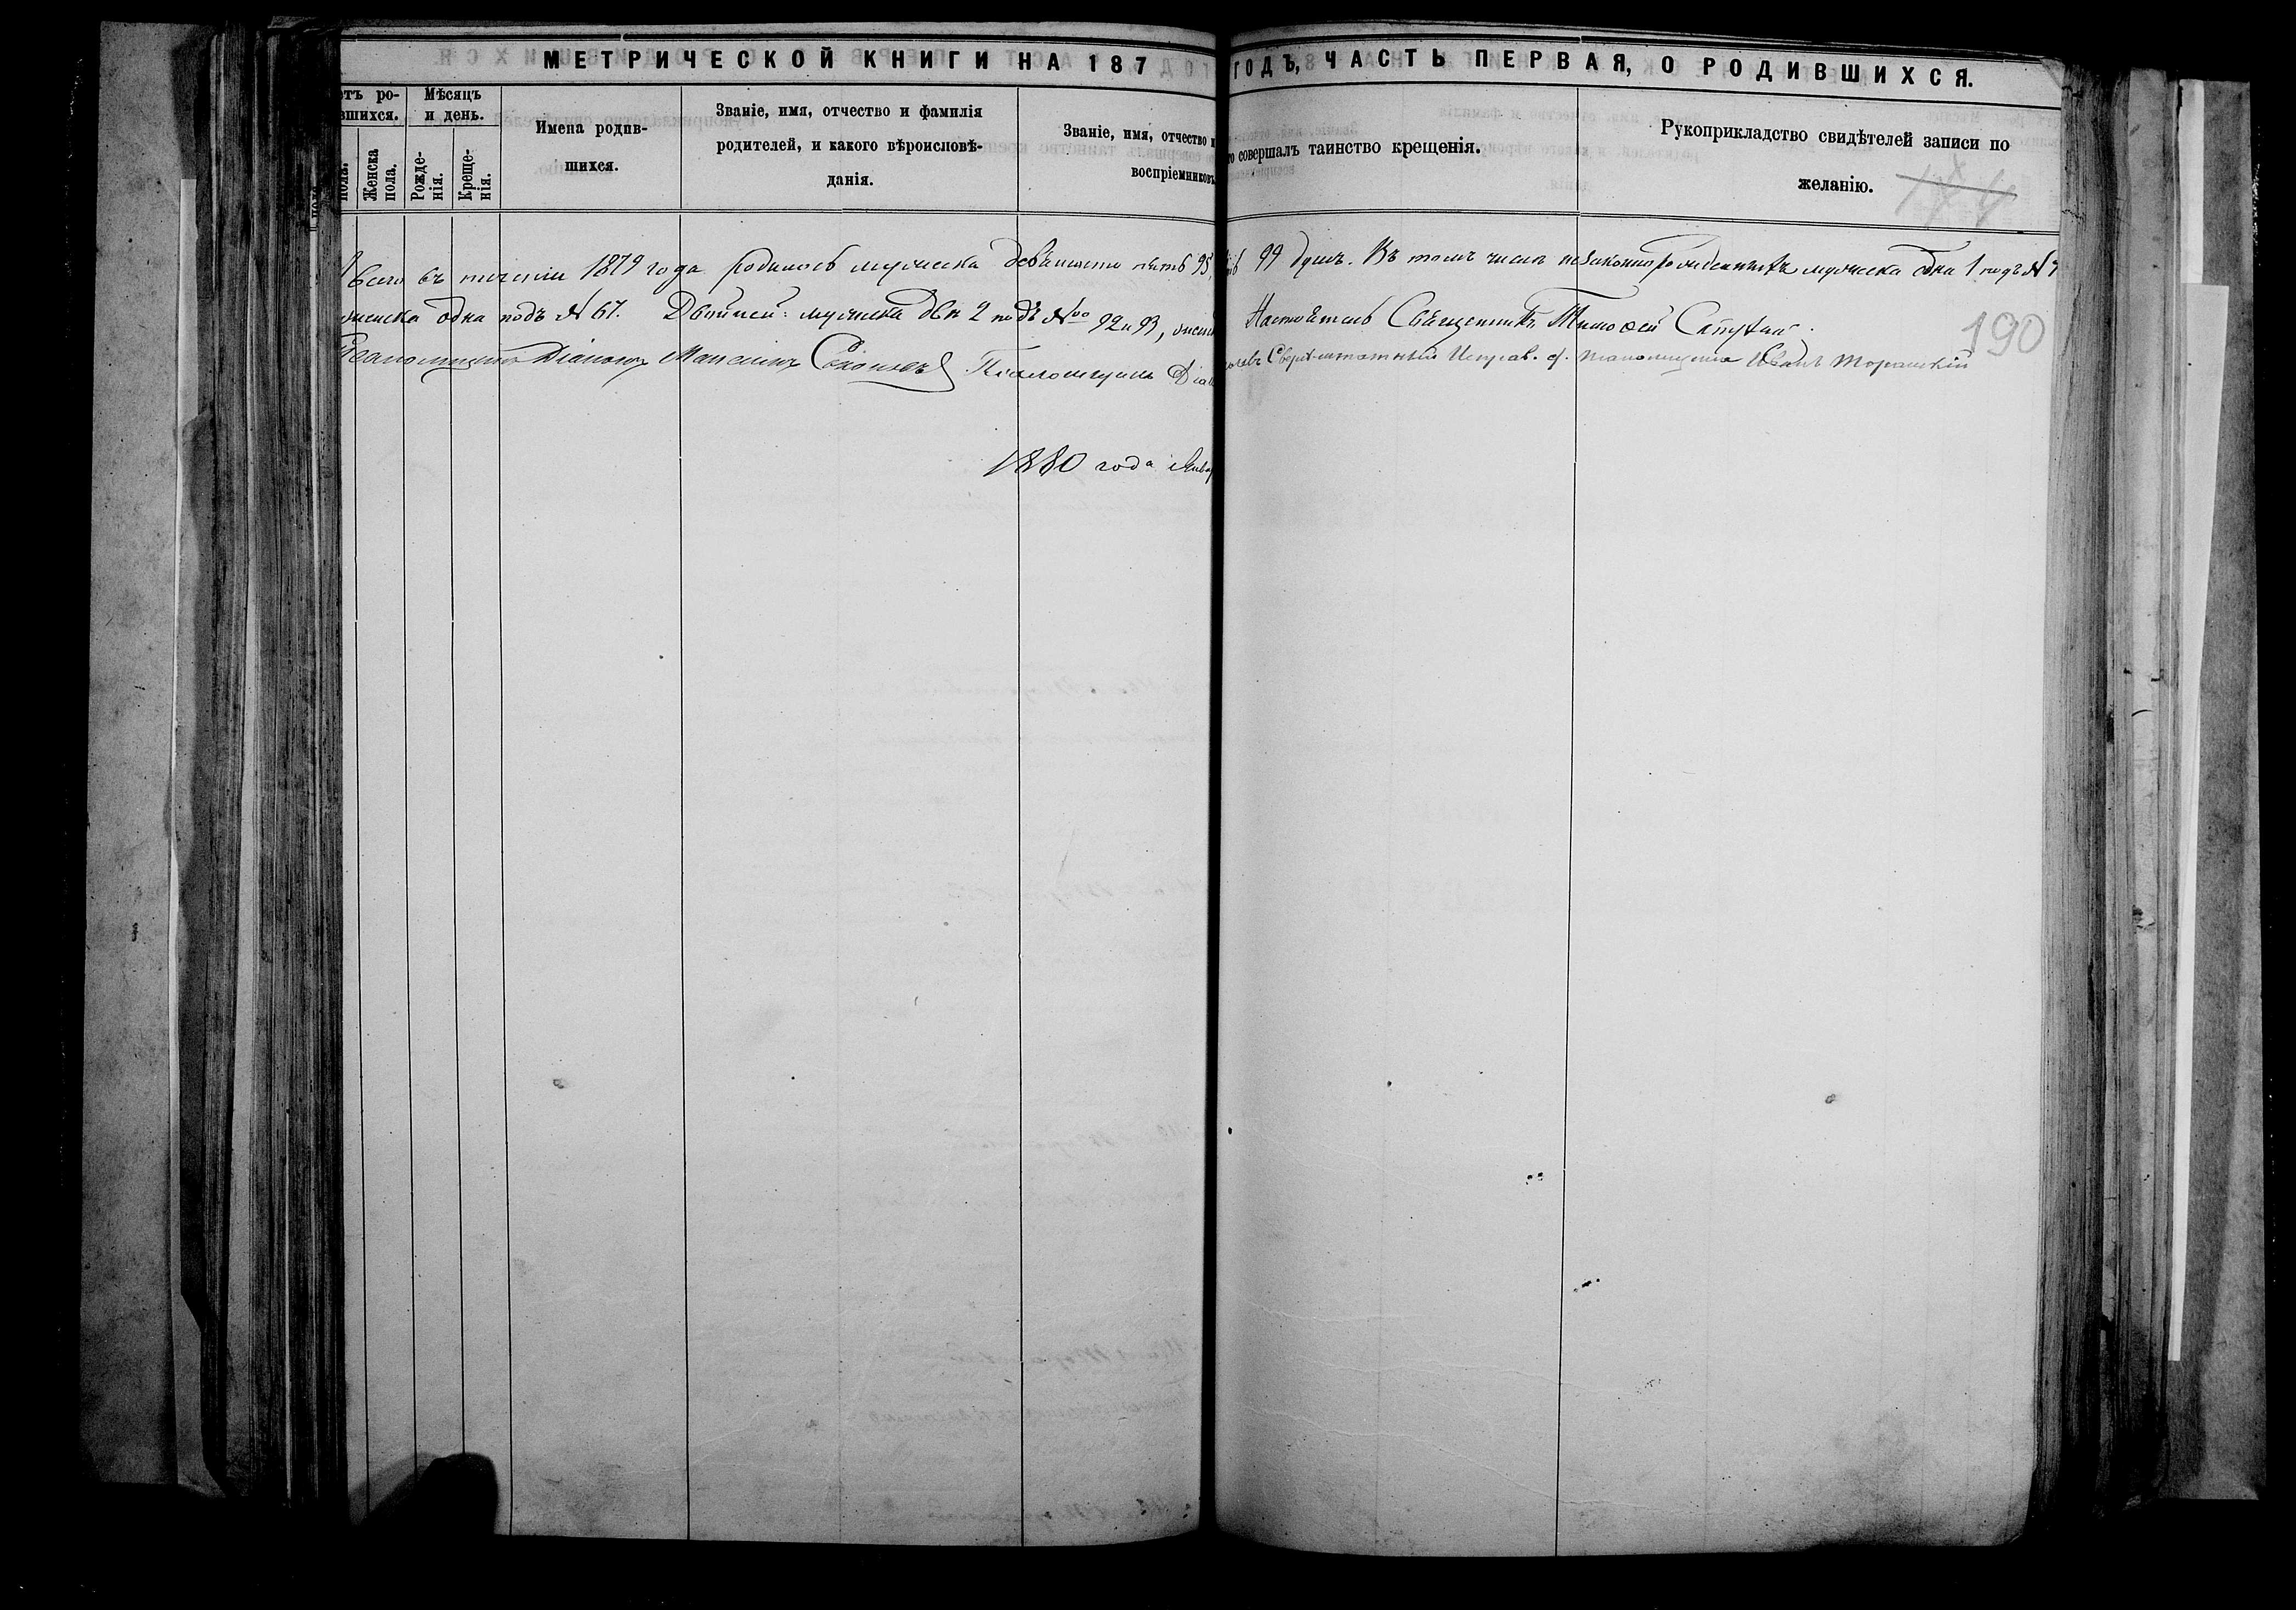 МЕТРИЧЕСКОЙ КНИГИ НА 187
ГОДЪ, ЧАСТЬ ПЕРВАЯ, О РОДИВШИХСЯ.
етъ ро-
вшихся.
пола.
Женска
пола.
Мѣсяцъ
и день.
Рожде-
нія.
Креще-
нія.
Имена родив-
шихся.
Званіе, имя, отчество и фамилія
родителей, и какого вѣроисповѣ-
данія.
Званіе, имя, отчество и
воспріемниковъ
то совершалъ таинство крещенія.
Рукоприкладство свидѣтелей записи по
желанію.
190
Всего въ теченіи 1879 года родилось мужеска девяносто пять 95,
99 душъ. Въ томъ числѣ незаконнорожденныхъ мужеска одна 1 подъ №
женска одна подъ № 67. Двойней: мужеска двѣ 2 подъ №№ 92 и 93, женск
Настоятель Священникъ Тимоѳей
Псаломщикъ Діаконъ Псаломщикъ Діак
Сверхштатный Исправ. д. псаломщика Иванъ
1880 года Январ